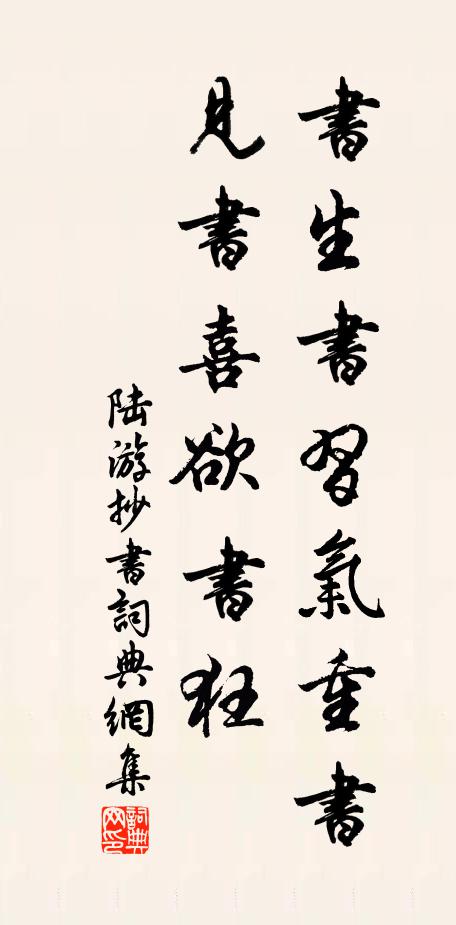 書生書習氣重書
見書喜欲書狂
陆游抄書詞典網集
詞典网印